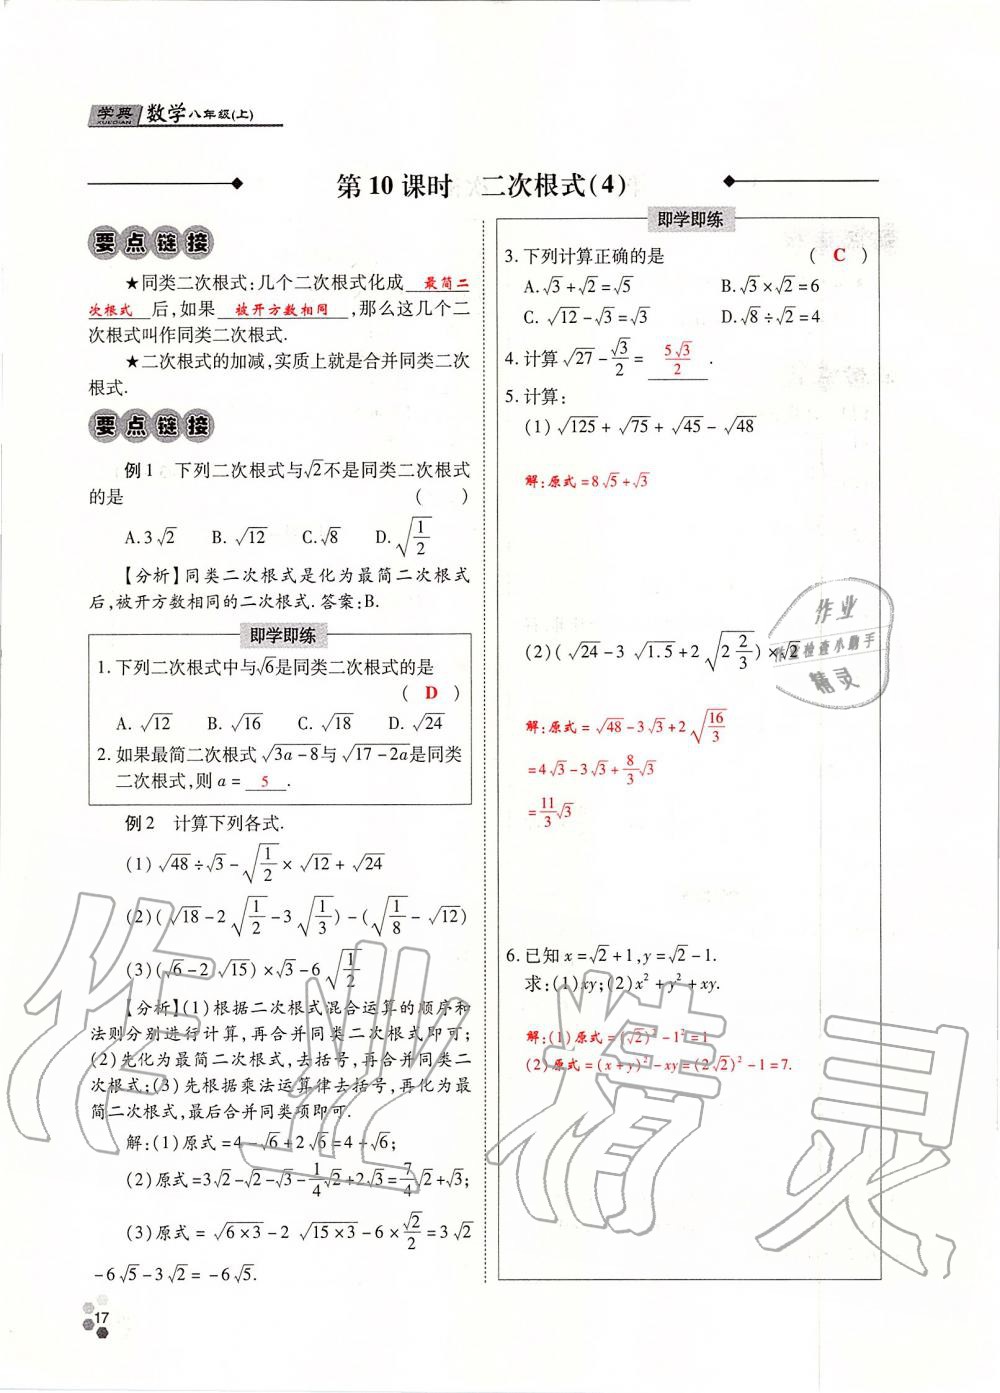 学典 数学八年级(上)
XUEDIAN
第10课时 二次根式(4)
要点链接
★同类二次根式:几个二次根式化成 最简二
次根式 后,如果 被开方数相同 ,那么这几个二
次根式叫作同类二次根式.
★二次根式的加减,实质上就是合并同类二次
根式.
要点链接
例1 下列二次根式与√2不是同类二次根式
的是 ( )
A.3√2 B.√12 C.√8 D.√(1/2)
【分析】同类二次根式是化为最简二次根式
后,被开方数相同的二次根式.答案:B.
即学即练
1.下列二次根式中与√6是同类二次根式的是
( D )
A.√12 B.√16 C.√18 D.√24
2.如果最简二次根式√(3a-8)与√(17-2a)是同类
二次根式,则a= 5 .
例2 计算下列各式.
(1)√48÷√3-√(1/2)×√12+√24
(2)(√18-2√(1/2)-3√(1/3))-(√(1/8)-√12)
(3)(√6-2√15)×√3-6√(1/2)
【分析】(1)根据二次根式混合运算的顺序和
法则分别进行计算,再合并同类二次根式即可;
(2)先化为最简二次根式,去括号,再合并同类二
次根式;(3)先根据乘法运算律去括号,再化为最
简二次根式,最后合并同类项即可.
解:(1)原式=4-√6+2√6=4+√6;
(2)原式=3√2-√2-√3-1/4√2+2√3=7/4√2+√3;
(3)原式=√(6×3)-2√(15×3)-6×√2/2=3√2
-6√5-3√2=-6√5.
17
即学即练
3.下列计算正确的是 ( C )
A.√3+√2=√5 B.√3×√2=6
C.√12-√3=√3 D.√8÷√2=4
4.计算√27-√3/2= 5√3/2 .
5.计算:
(1)√125+√75+√45-√48
解:原式=8√5+√3
(2)(√24-3√1.5+2√(2 2/3))×√2
解:原式=√48-3√3+2√(16/3)
=4√3-3√3+8/3√3
=11/3√3
6.已知x=√2+1,y=√2-1.
求:(1)xy;(2)x²+y²+xy.
解:(1)原式=(√2)²-1²=1
(2)原式=(x+y)²-xy=(2√2)²-1=7.
作业
作业检查小助手
精灵
作业精灵